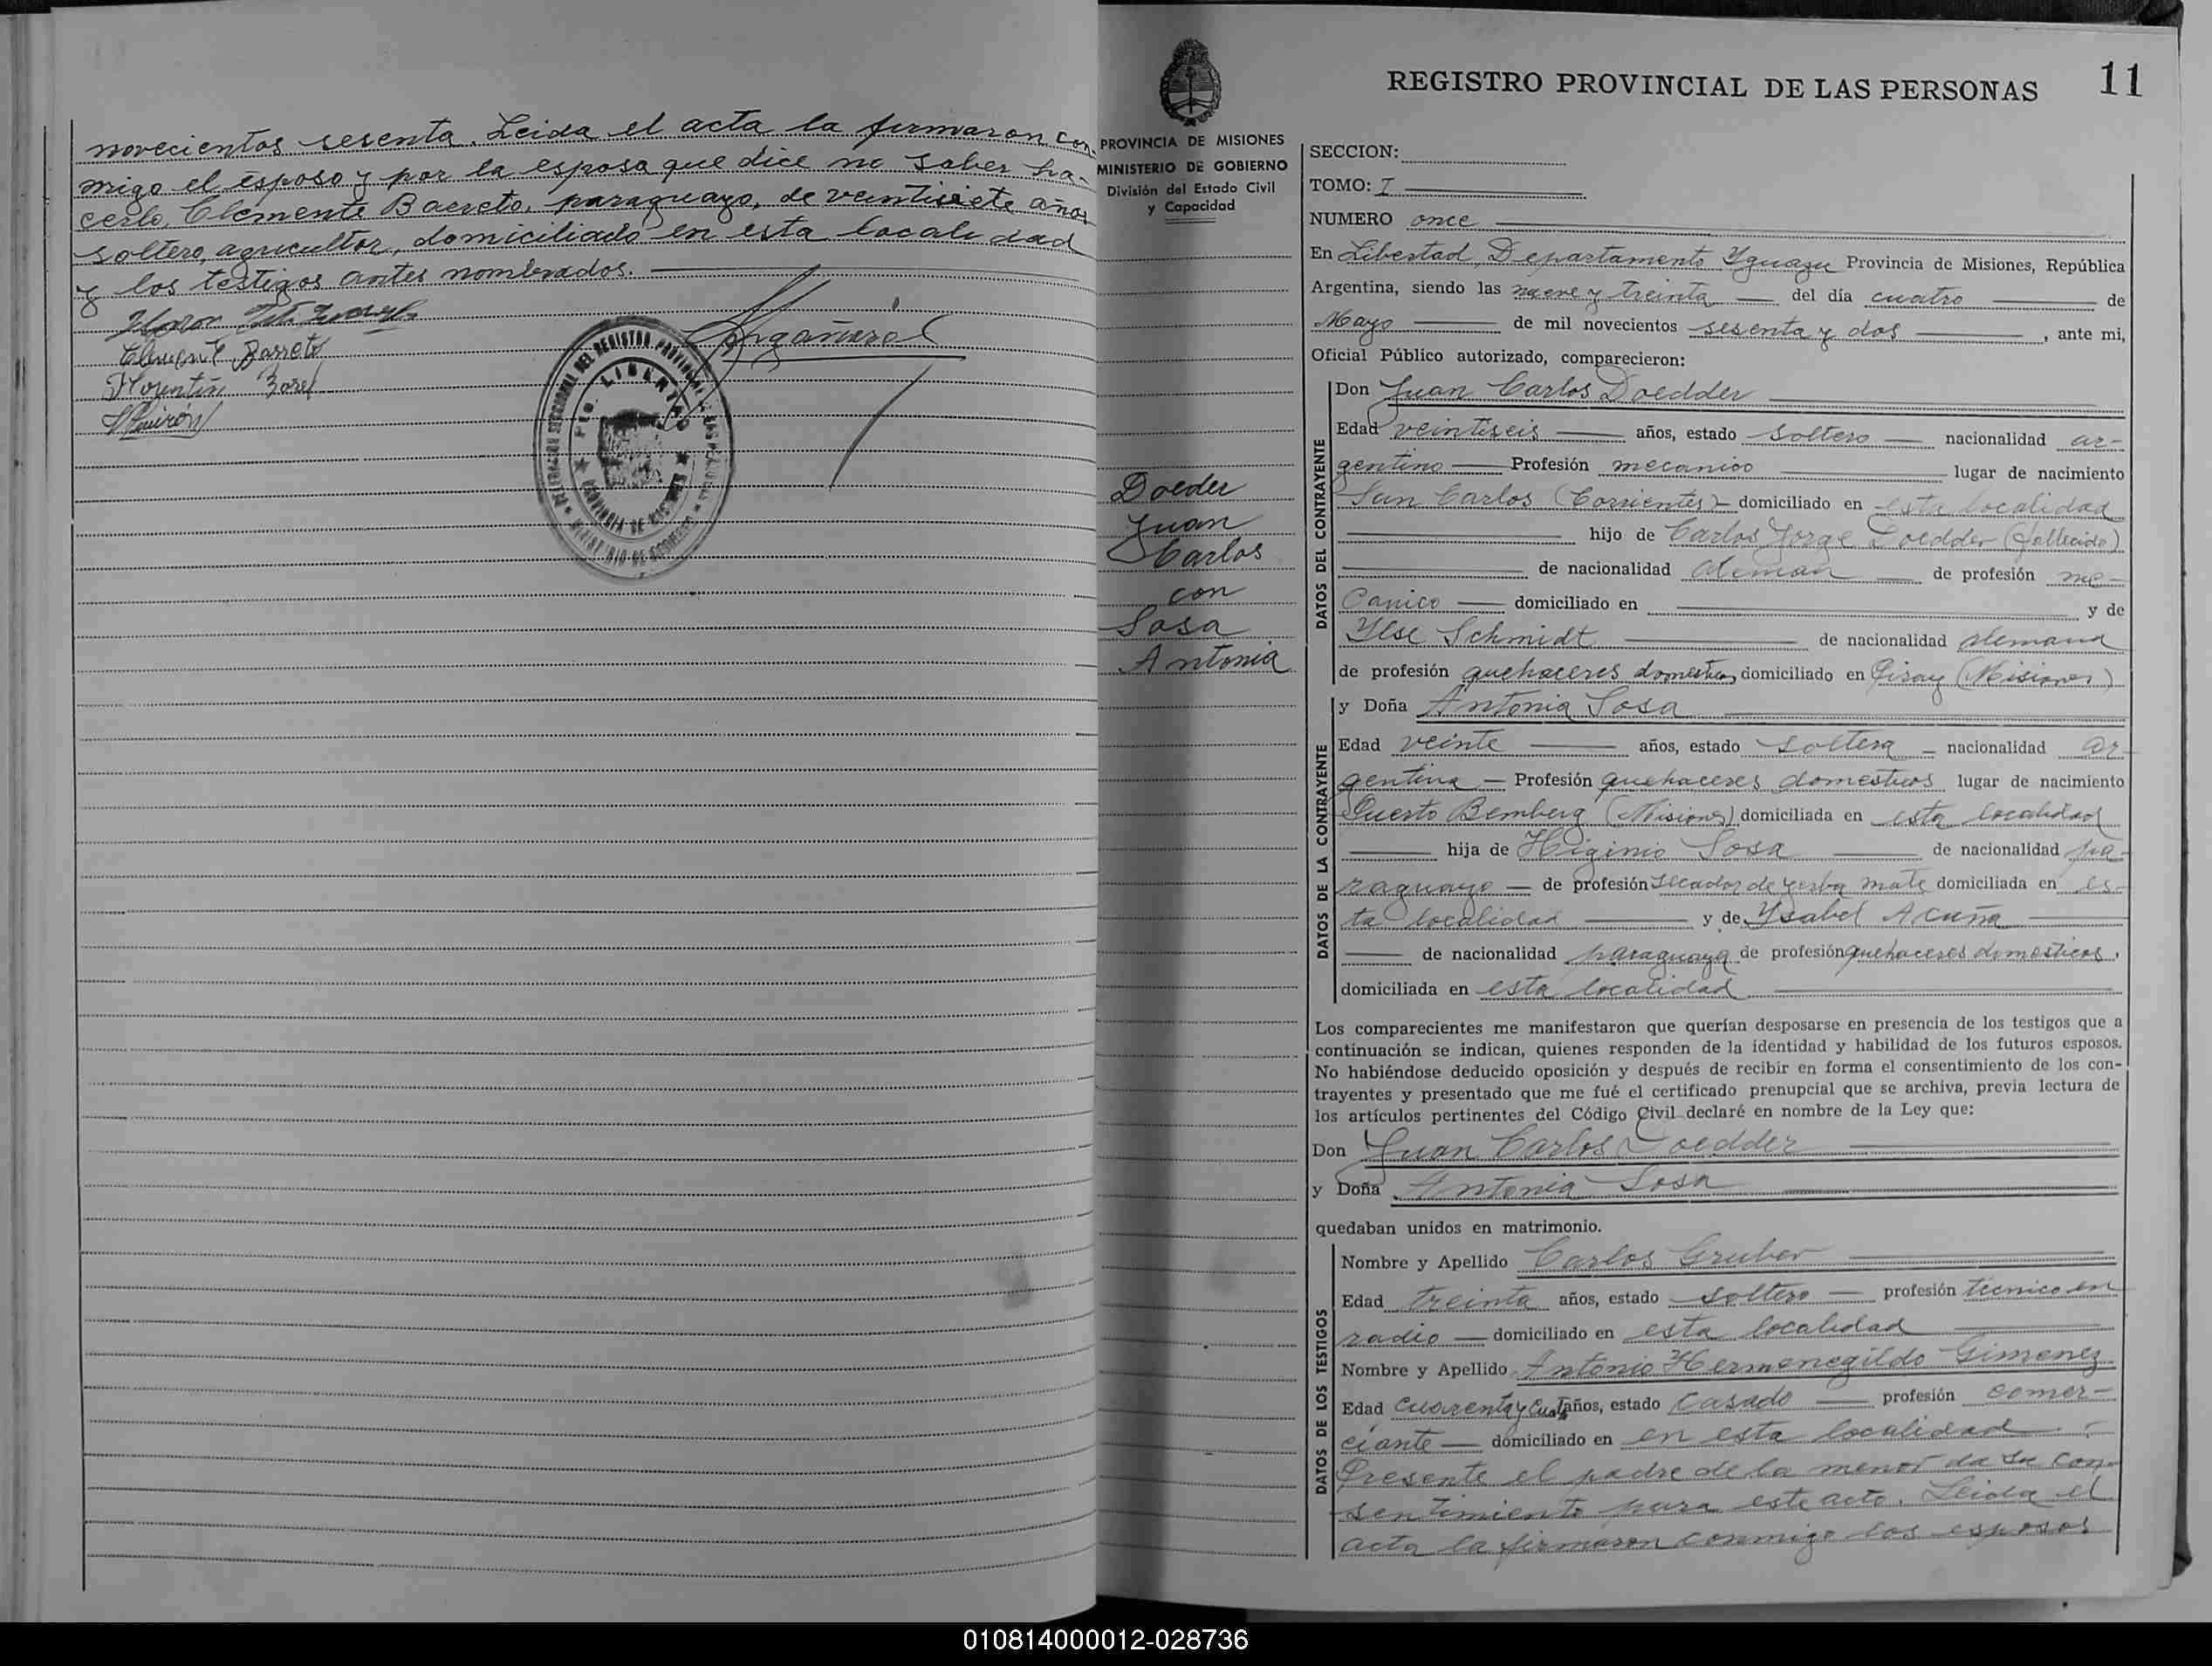 novecientos sesenta. Leida el acta la firmaron con-
migo el esposo y por la esposa que dice no saber ha-
cerlo, Clemente Barreto, paraguayo, de veintisiete años
soltero, agricultor, domiciliado en esta localidad
y los testigos antes nombrados.
Clement Barreto
Florentin
PROVINCIA DE MISIONES
MINISTERIO DE GOBIERNO
División del Estado Civil
y Capacidad
Doeder
Juan
Carlos
con
Sosa
Antonia
REGISTRO PROVINCIAL DE LAS PERSONAS 11
SECCION:
TOMO: I
NUMERO once
En Libertad, Departamento Yguazu Provincia de Misiones, República
Argentina, siendo las nueve y treinta del día cuatro de
Mayo de mil novecientos sesenta y dos, ante mi,
Oficial Público autorizado, comparecieron:
DATOS DEL CONTRAYENTE
Don Juan Carlos Doedder
Edad veintiseis años, estado soltero nacionalidad ar-
gentino Profesión mecanico lugar de nacimiento
San Carlos (Corrientes) domiciliado en esta localidad
hijo de Carlos Jorge Doedder (fallecido)
de nacionalidad Aleman de profesión me-
canico domiciliado en y de
Ylse Schmidt de nacionalidad alemana
de profesión quehaceres domesticos domiciliado en Piray (Misiones)
DATOS DE LA CONTRAYENTE
y Doña Antonia Sosa
Edad veinte años, estado soltera nacionalidad ar-
gentina Profesión quehaceres domesticos lugar de nacimiento
Puerto Bemberg (Misiones) domiciliada en esta localidad
hija de Higinio Sosa de nacionalidad pa-
raguayo de profesión secador de yerba mate domiciliada en es-
ta localidad y de Ysabel Acuña
de nacionalidad paraguaya de profesión quehaceres domesticos,
domiciliada en esta localidad
Los comparecientes me manifestaron que querían desposarse en presencia de los testigos que a
continuación se indican, quienes responden de la identidad y habilidad de los futuros esposos.
No habiéndose deducido oposición y después de recibir en forma el consentimiento de los con-
trayentes y presentado que me fué el certificado prenupcial que se archiva, previa lectura de
los artículos pertinentes del Código Civil declaré en nombre de la Ley que:
Don Juan Carlos Doedder
y Doña Antonia Sosa
quedaban unidos en matrimonio.
DATOS DE LOS TESTIGOS
Nombre y Apellido Carlos Gruber
Edad treinta años, estado soltero profesión tecnico en
radio domiciliado en esta localidad
Nombre y Apellido Antonio Hermenegildo Gimenez
Edad cuarenta y cuatro años, estado casado profesión comer-
ciante domiciliado en en esta localidad.
Presente el padre de la menor da su con-
sentimiento para este acto. Leida el
acta la firmaron conmigo los esposos
010814000012-028736